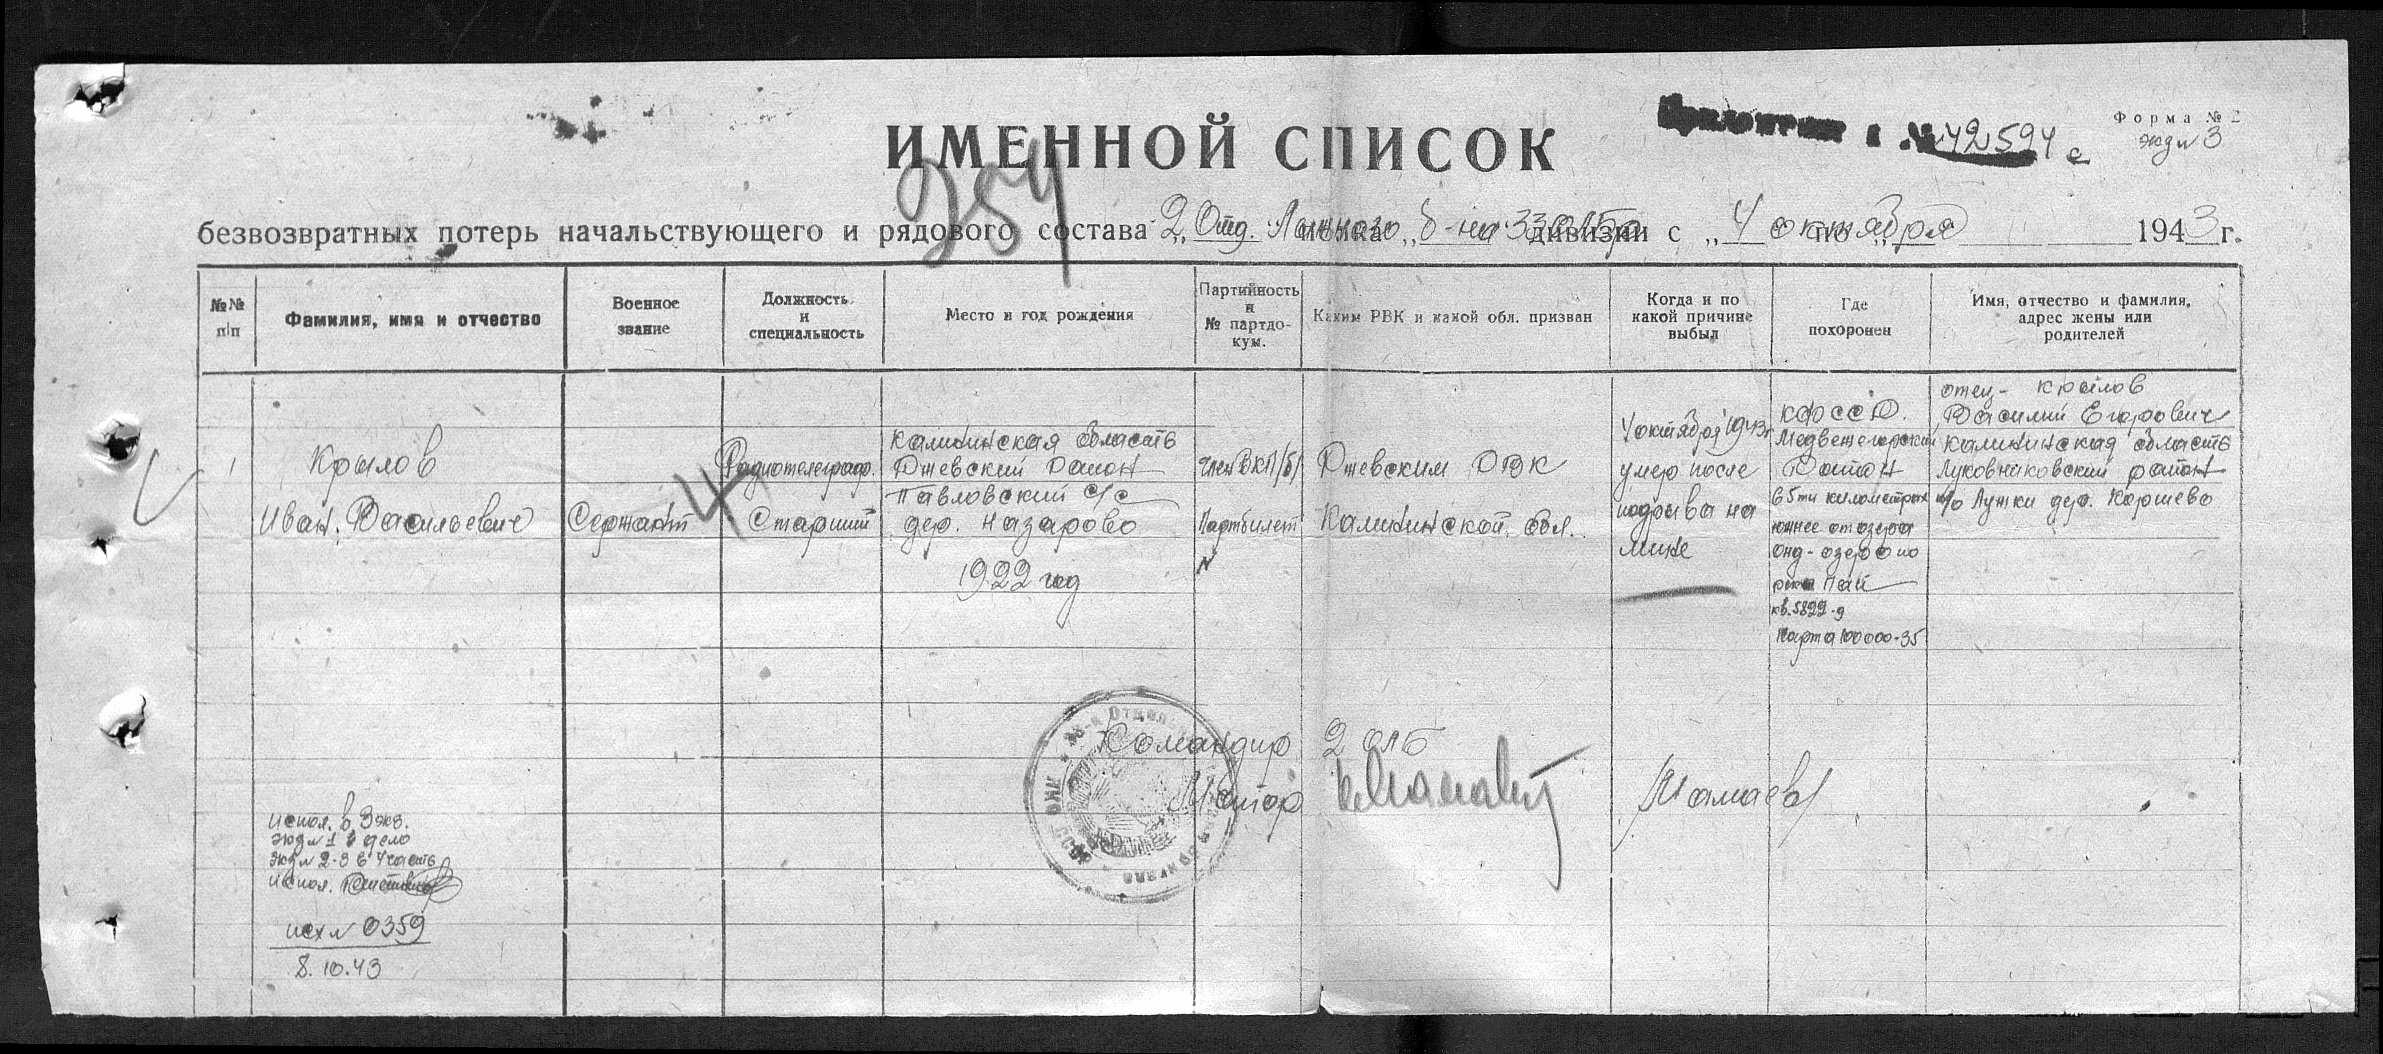 Форма № 2
экз № 3
№ 42594 с
ИМЕННОЙ СПИСОК
254
безвозвратных потерь начальствующего и рядового состава 2 Отд. Лыжного полка б-на 33 дивизии с „4 октября по „ 1943 г.
№№ п/п
Фамилия, имя и отчество
Военное звание
Должность и специальность
Место и год рождения
Партийность и № партдокум.
Каким РВК и какой обл. призван
Когда и по какой причине выбыл
Где похоронен
Имя, отчество и фамилия, адрес жены или родителей
1
Крылов
Иван Васильевич
Сержант
Радиотелеграф.
Старший
Калининская область
Ржевский район
Павловский с/с
дер. Назарово
1922 год
член ВКП/б/
Партбилет
№
Ржевским РВК
Калининской обл.
4 октября 1943г
умер после
подрыва на
мине
КФССР.
Медвежегорский
Район
в 5ти километрах
южнее от озера
Онд-озеро по
реке Пай
кв. 5822-д
Карта 100000-35
отец - Крылов
Василий Егорович
Калининская область
Луковниковский район
п/о Лужки дер. Коршево
Командир 2 ОЛБ
Майор
НКО СССР
испол. в 3 экз.
экз № 1 в дело
экз № 2-3 в часть
испол.
исх № 0359
8.10.43